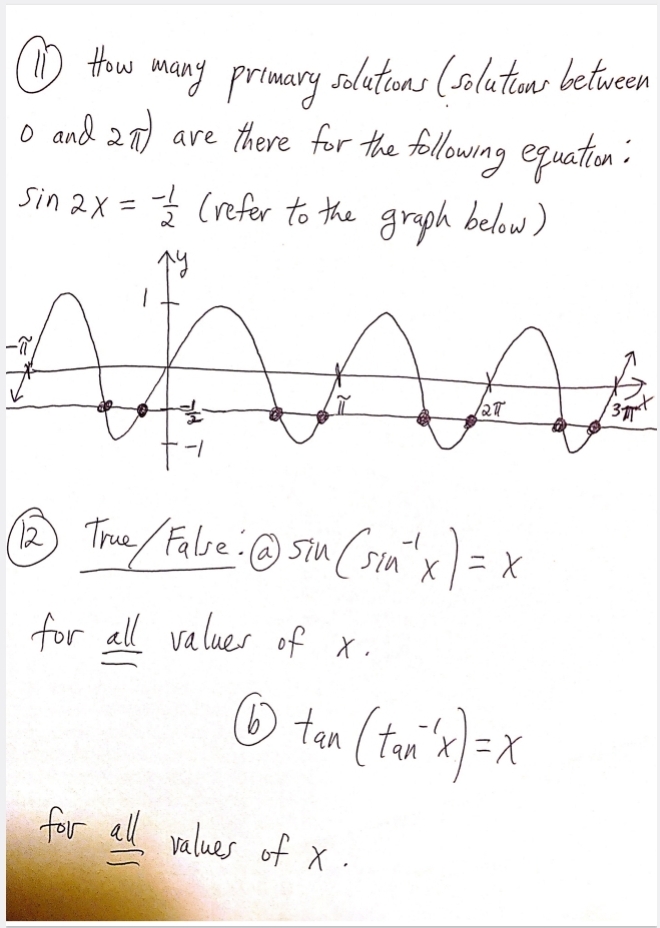 ⑪ How many primary solutions (solutions between
0 and 2π) are there for the following equation:
sin 2x = -1/2 (refer to the graph below)
y
1
-π
-1/2
π
2π
3π
x
-1
⑫ True/False: ⓐ sin(sin⁻¹x) = x
for all values of x.
ⓑ tan(tan⁻¹x) = x
for all values of x.